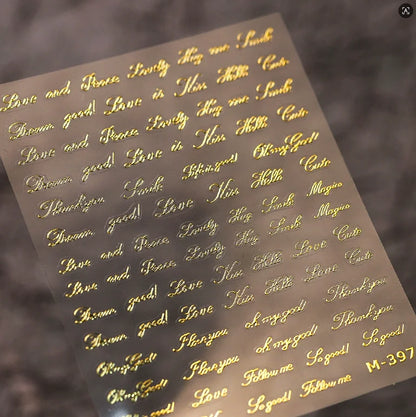 Love and Peace Lovely Hug me Smile
Dream good! Love is Kiss Hello Cute
Love and Peace Lovely Hug me Smile
Dream good! Love is Kiss Hello Cute
Thank you Smile Lifeis good! Oh my God!
Dream good! Love Kiss Hello Cute
Love and Peace Lovely Hug Smile Magic
Love and Peace Lovely Hug Smile Magic
Dream good! Love Kiss Hello Love Cute
Dream good! Love Kiss Hello Love Cute
Oh my God! I love you oh my god! Thank you
Oh my God! I love you oh my god! Thank you
Love Follow me So good!
Love Follow me So good!
M-397